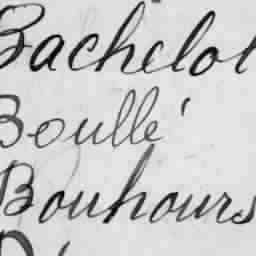 Bachelot
Boullé
Bouhours